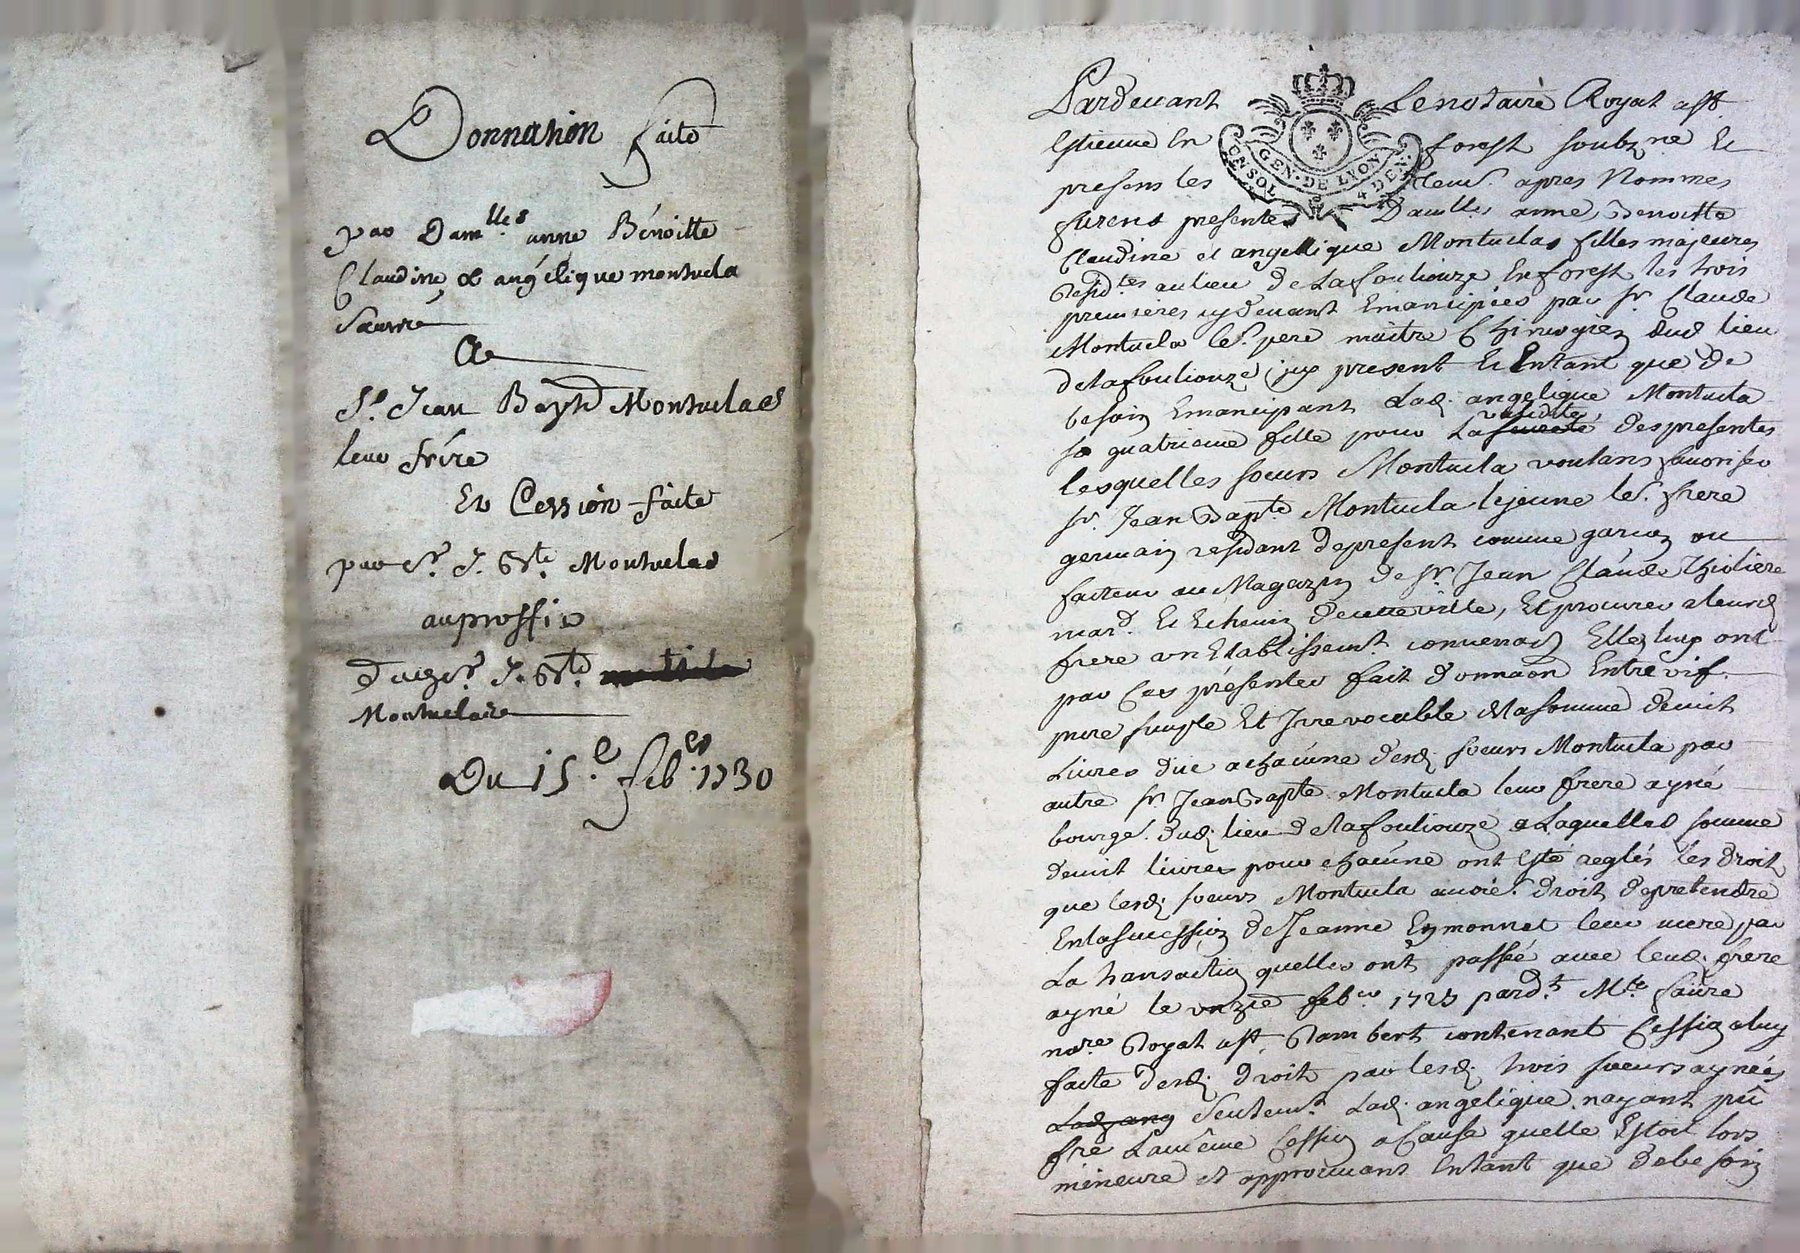 Donnation faite
par Dam.lles anne Bénoitte
Claudine, & angélique montucla
Sr. Jean Bapt. Montucla
leur frère
Et Cession faite
par Sr. J. Bte. Montucla
au proffit
Montucla
Du 15.e feb. 1730
Pardevant Le notaire Royal à St.
Estienne En forest soubz.né Et
presens les apres Nommés
furent presentes Dam.lles anne, Benoitte
Claudine et angellique Montucla filles majeures
Resid.tes au lieu de Lafouliouze En forest les trois
premieres cy devant Emancipées par Sr. Claude
Montucla le. pere maitre Chirurgien dud lieu
de lafouliouze icy present Et Entant que de
besoin Emancipant Lad. angelique Montucla
sa quatrieme fille pour La validité des presentes
lesquelles soeurs Montucla voulans favoriser
Sr. Jean Bapt.e Montucla lejeune le. frere
germain residant de present comme garçon ou
facteur au Magazin de Sr. Jean Claude Thioliere
mar.d Et Echevin de cette ville, Et procurer a leurd
frere un Etablissem.t convenab Elles luy ont
par Ces présentes fait donnaon Entre vif.
pure simple Et Irrevocable de la somme de huit
Livres due a chacune desd. soeurs Montucla par
autre Sr. Jean Bapte. Montucla leur frere ayné
bourge. dud. lieu de lafouliouze a Laquelle somme
de huit livres pour chacune ont esté reglés les droits
que lesd. soeurs Montucla avoie. droit de pretendre
En la succession de Jeanne Eymonnet leur mere par
La transaction quelles ont passée avec leurd. frere
ayné le unzie feb. 1725 pard.t Me. faure
no.re Royal à St. Rambert contenant Cession a luy
faite desd. droits par lesd. trois soeurs aynées
seulem.t Lad. angelique nayant pû
fre La même Cession a Cause quelle Estoit lors
mineure et approuvant Entant que de besoin
CON SOL GEN. DE LYON 4 DEN